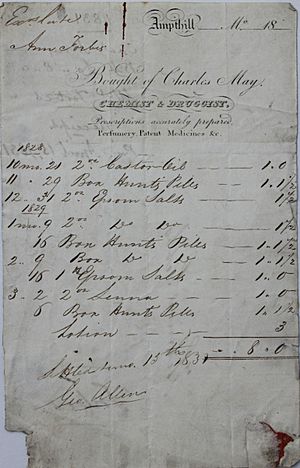 Ampthill Mo 18
Ann Forbes
Bought of Charles May,
CHEMIST & DRUGGIST,
Prescriptions accurately prepared
Perfumery, Patent Medicines &c.
1828
10 mo. 21 2 oz Castor Oil — 1. 0
11 . 29 Box Hunts Piles — 1. 1½
12 . 31 2 oz Epsom Salts — 1½
1829
1 mo. 9 2 oz Do Do — 1½
16 Box Hunts Piles — 1. 1½
2 . 9 Box Do Do — 1. 1½
18 1 Epsom Salts — 1. 0
3 . 2 2 oz Senna — 1. 0
6 Box Hunts Piles — 1. 1½
Lotion — 3
8. 0
13th
Geo Allen